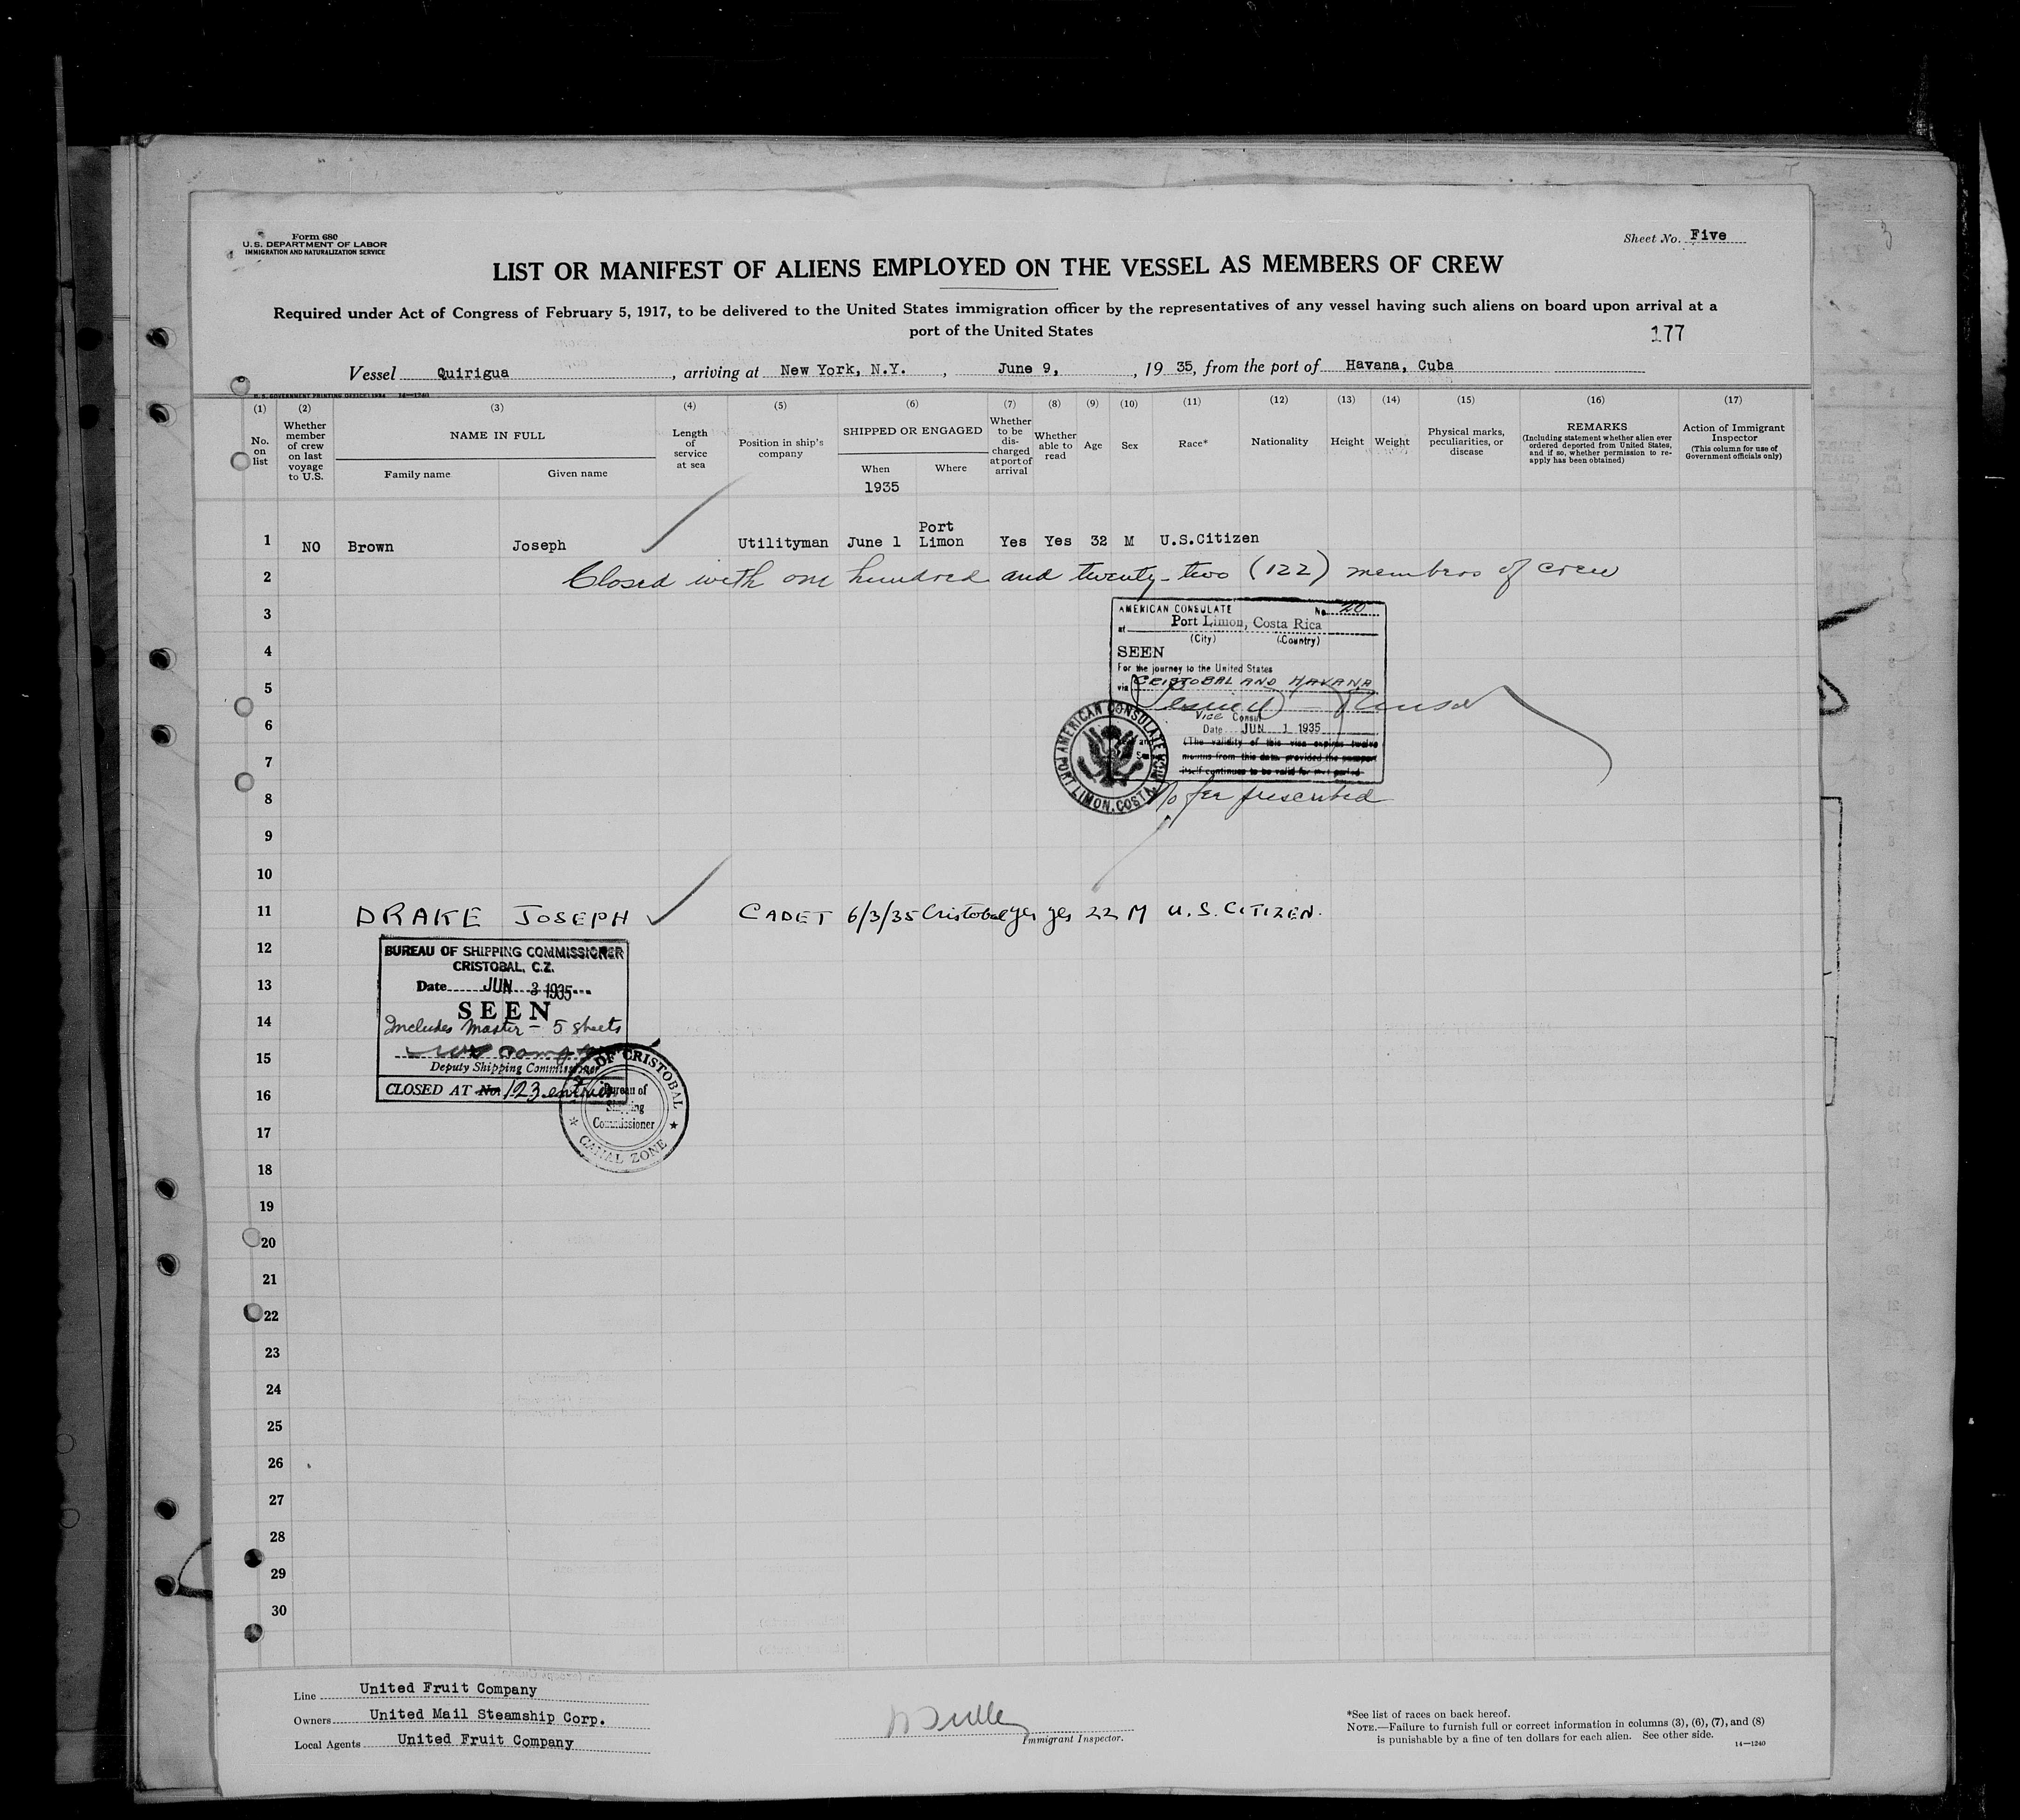 Form 680
U. S. DEPARTMENT OF LABOR
IMMIGRATION AND NATURALIZATION SERVICE
Sheet No. Five
LIST OR MANIFEST OF ALIENS EMPLOYED ON THE VESSEL AS MEMBERS OF CREW
Required under Act of Congress of February 5, 1917, to be delivered to the United States immigration officer by the representatives of any vessel having such aliens on board upon arrival at a
port of the United States
177
Vessel Quirigua, arriving at New York, N.Y., June 9, 1935, from the port of Havana, Cuba
U. S. GOVERNMENT PRINTING OFFICE: 1934 14—1240
(1) (2) (3) (4) (5) (6) (7) (8) (9) (10) (11) (12) (13) (14) (15) (16) (17)
No. on list
Whether member of crew on last voyage to U.S.
NAME IN FULL
Family name
Given name
Length of service at sea
Position in ship's company
SHIPPED OR ENGAGED
When
Where
1935
Whether to be discharged at port of arrival
Whether able to read
Age
Sex
Race*
Nationality
Height
Weight
Physical marks, peculiarities, or disease
REMARKS
(Including statement whether alien ever ordered deported from United States, and if so, whether permission to reapply has been obtained)
Action of Immigrant Inspector
(This column for use of Government officials only)
1 NO Brown Joseph Utilityman June 1 Port Limon Yes Yes 32 M U.S.Citizen
2 Closed with one hundred and twenty-two (122) members of crew
3
AMERICAN CONSULATE No. 20
at Port Limon, Costa Rica
(City) (Country)
4
SEEN
For the journey to the United States
5
via CRISTOBAL AND HAVANA
6
Vice Consul
Date JUN 1 1935
7
(The validity of this visa expires twelve
months from this date provided the passport
itself continues to be valid for that period
AMERICAN CONSULATE
PORT LIMON, COSTA RICA
8
No fee prescribed
9
10
11 DRAKE JOSEPH CADET 6/3/35 Cristobal yes yes 22 M U.S. CITIZEN.
12
BUREAU OF SHIPPING COMMISSIONER
CRISTOBAL, C.Z.
13
Date JUN 3 1935
SEEN
14
Includes Master - 5 sheets
15
Deputy Shipping Commissioner
16
CLOSED AT No. 123 entries
OF CRISTOBAL
Bureau of
Shipping
Commissioner
CANAL ZONE
17
18
19
20
21
22
23
24
25
26
27
28
29
30
Line United Fruit Company
Owners United Mail Steamship Corp.
Local Agents United Fruit Company
Immigrant Inspector.
*See list of races on back hereof.
NOTE.—Failure to furnish full or correct information in columns (3), (6), (7), and (8)
is punishable by a fine of ten dollars for each alien. See other side.
14—1240